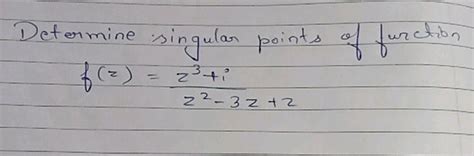 Determine singular points of function
f(z) = z³+i
z²-3z+2